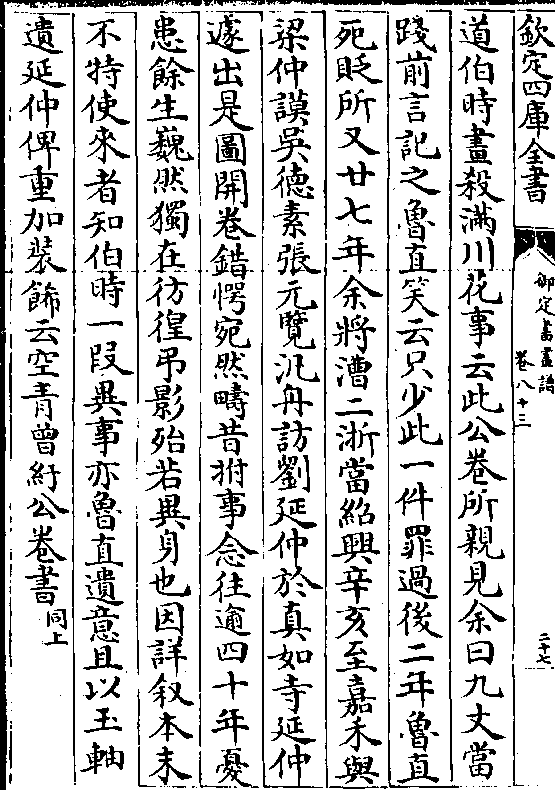 欽定四庫全書
御定書畫譜
卷八十三
二十七
道伯時畫殺滿川花事云此公卷所親見余曰九丈當
踐前言記之魯直笑云只少此一件罪過後二年魯直
死貶所又廿七年余將漕二浙當紹興辛亥至嘉禾與
梁仲謨吳德素張元覽汎舟訪劉延仲於真如寺延仲
遽出是圖開卷錯愕宛然疇昔拊事念往逾四十年憂
患餘生巍然獨在彷徨弔影殆若異身也因詳叙本末
不特使來者知伯時一段異事亦魯直遺意且以玉軸
遺延仲俾重加裝飾云空青曾紆公卷書同上